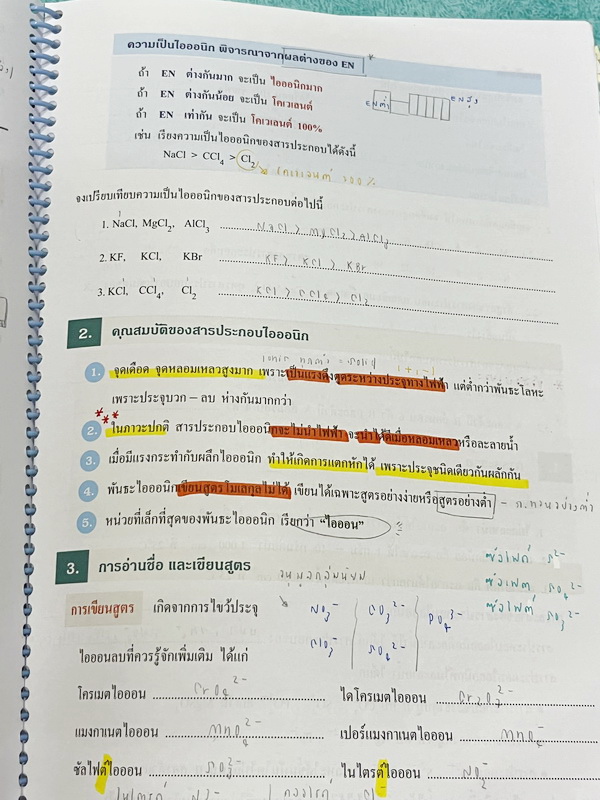 ความเป็นไอออนิก พิจารณาจากผลต่างของ EN *
ถ้า EN ต่างกันมาก จะเป็น ไอออนิกมาก
ถ้า EN ต่างกันน้อย จะเป็น โคเวเลนต์
ถ้า EN เท่ากัน จะเป็น โคเวเลนต์ 100%
EN ต่ำ EN สูง
เช่น เรียงความเป็นไอออนิกของสารประกอบได้ดังนี้
NaCl > CCl4 > Cl2
โคเวเลนต์ 100 %
จงเปรียบเทียบความเป็นไอออนิกของสารประกอบต่อไปนี้
1. NaCl, MgCl2, AlCl3 NaCl > MgCl2 > AlCl3
2. KF, KCl, KBr KF > KCl > KBr
3. KCl, CCl4, Cl2 KCl > CCl4 > Cl2
2. คุณสมบัติของสารประกอบไอออนิก
1. จุดเดือด จุดหลอมเหลวสูงมาก เพราะเป็นแรงดึงดูดระหว่างประจุทางไฟฟ้า แต่ต่ำกว่าพันธะโลหะ
เพราะประจุบวก – ลบ ห่างกันมากกว่า
2. ในภาวะปกติ สารประกอบไอออนิกจะไม่นำไฟฟ้า จะนำได้ดีเมื่อหลอมเหลวหรือละลายน้ำ
3. เมื่อมีแรงกระทำกับผลึกไอออนิก ทำให้เกิดการแตกหักได้ เพราะประจุชนิดเดียวกันผลักกัน
4. พันธะไอออนิกเขียนสูตรโมเลกุลไม่ได้ เขียนได้เฉพาะสูตรอย่างง่ายหรือสูตรอย่างต่ำ
5. หน่วยที่เล็กที่สุดของพันธะไอออนิก เรียกว่า "ไอออน"
3. การอ่านชื่อ และเขียนสูตร
ซัลไฟด์ S2-
ซัลเฟต SO42-
ซัลไฟต์ SO32-
การเขียนสูตร เกิดจากการไขว้ประจุ
NO3- CO32- PO43-
ClO3- SO42-
ไอออนลบที่ควรรู้จักเพิ่มเติม ได้แก่
โครเมตไอออน CrO42- ไดโครเมตไอออน Cr2O72-
แมงกาเนตไอออน MnO42- เปอร์แมงกาเนตไอออน MnO4-
ซัลไฟต์ไอออน SO32- ไนไตรต์ไอออน NO2-